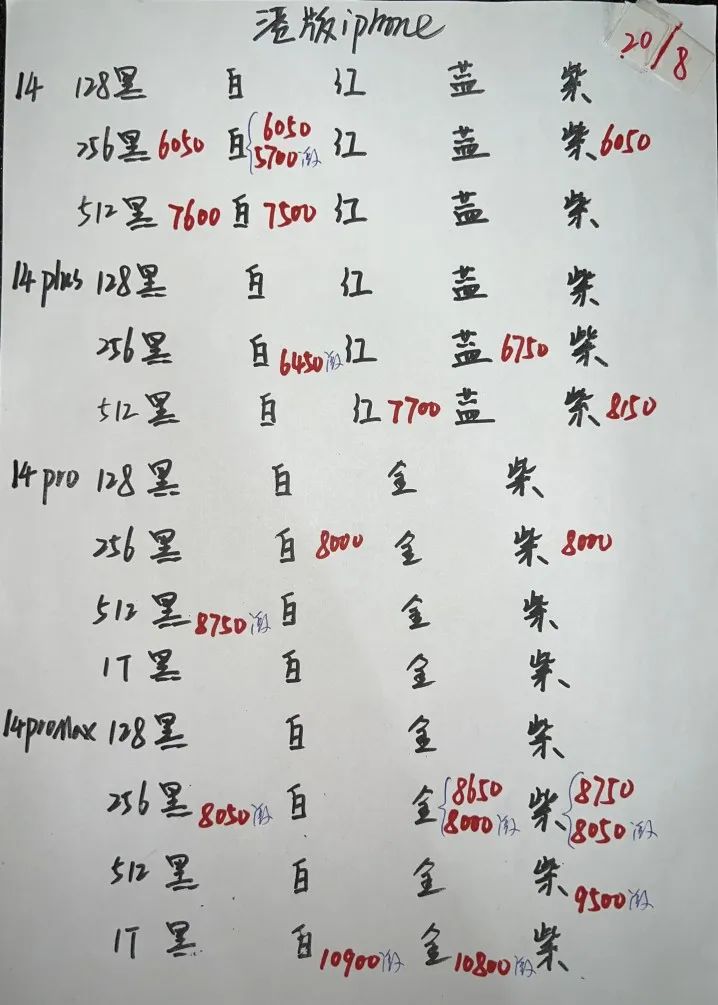 港版iphone
20/8
14 128黑 白 红 蓝 紫
256黑 6050 白 {6050 5700激 红 蓝 紫 6050
512黑 7600 白 7500 红 蓝 紫
14plus 128黑 白 红 蓝 紫
256黑 白 6450激 红 蓝 6750 紫
512黑 白 红 7700 蓝 紫 8150
14pro 128黑 白 金 紫
256黑 白 8000 金 紫 8000
512黑 8750激 白 金 紫
1T黑 白 金 紫
14proMax 128黑 白 金 紫
256黑 8050激 白 金 {8650 8000激 紫 {8750 8050激
512黑 白 金 紫 9500激
1T黑 白 10900激 金 10800激 紫